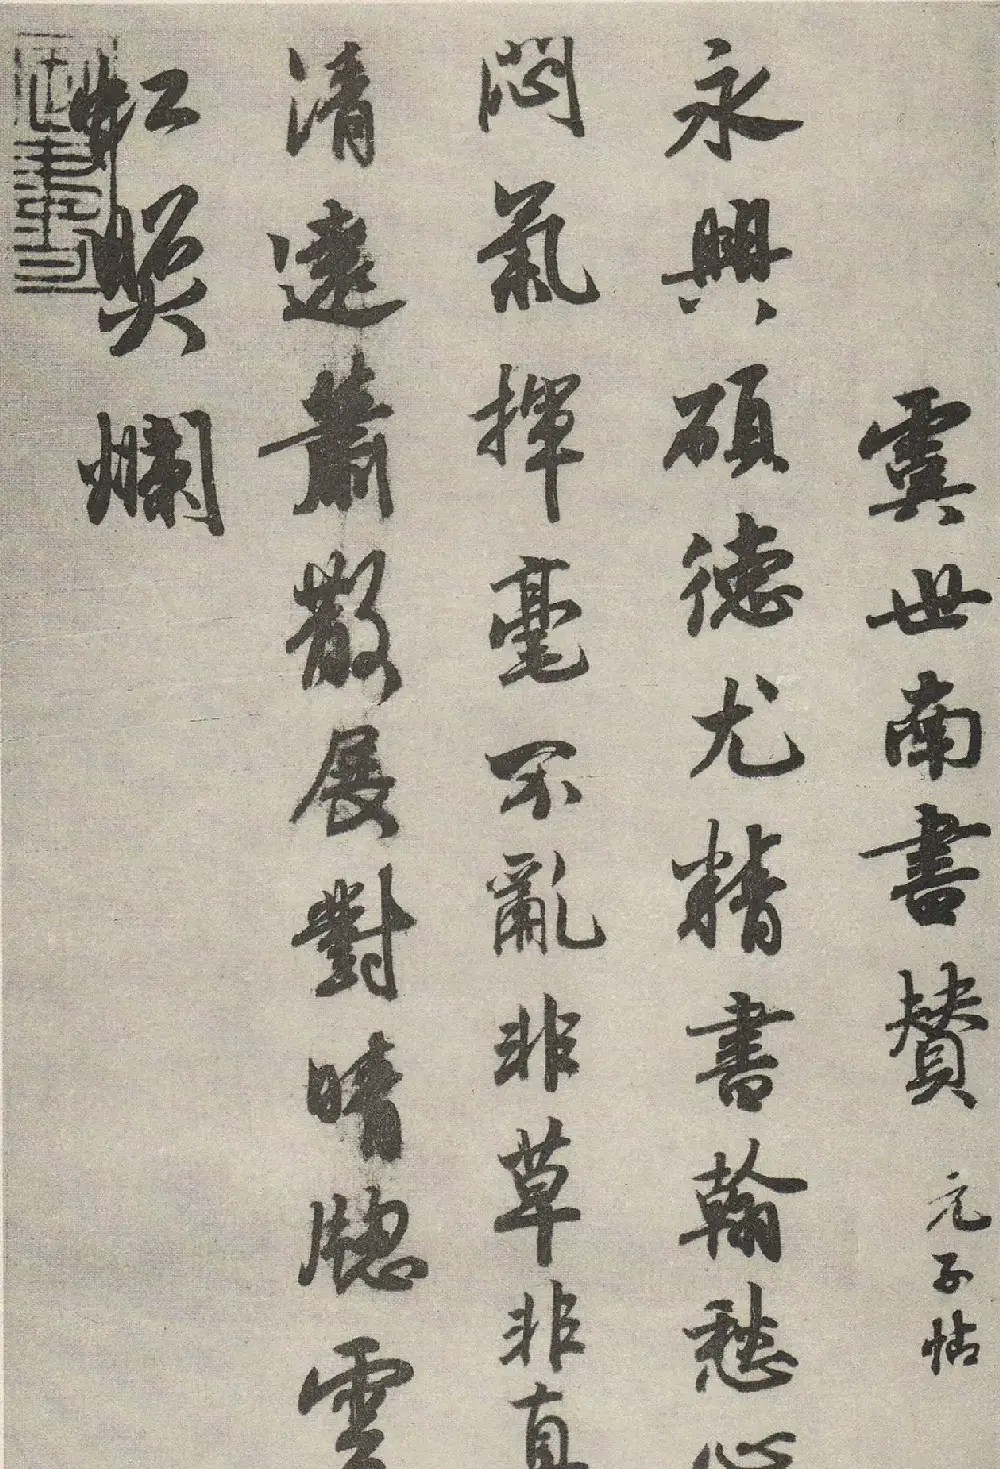 虞世南書贊 元子帖
永興碩德尤精書翰愁心
悶氣揮毫不亂非草非真
清遠蕭散展對晴牕雲
虹爛